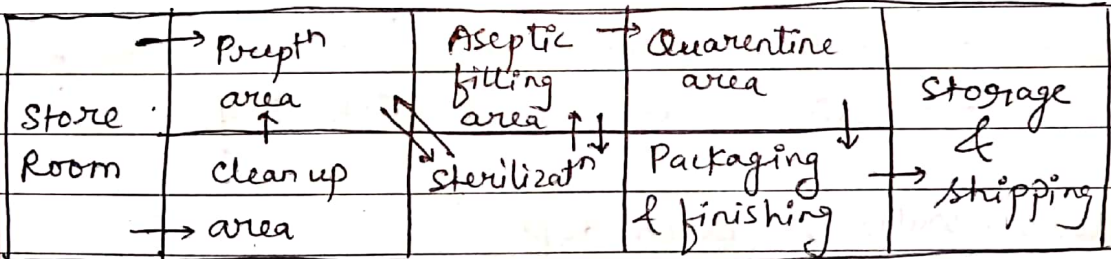 Store
Room
Prepth
area
Clean up
area
Aseptic
filling
area
Sterilizatn
Quarentine
area
Packaging
& finishing
Storage
&
shipping